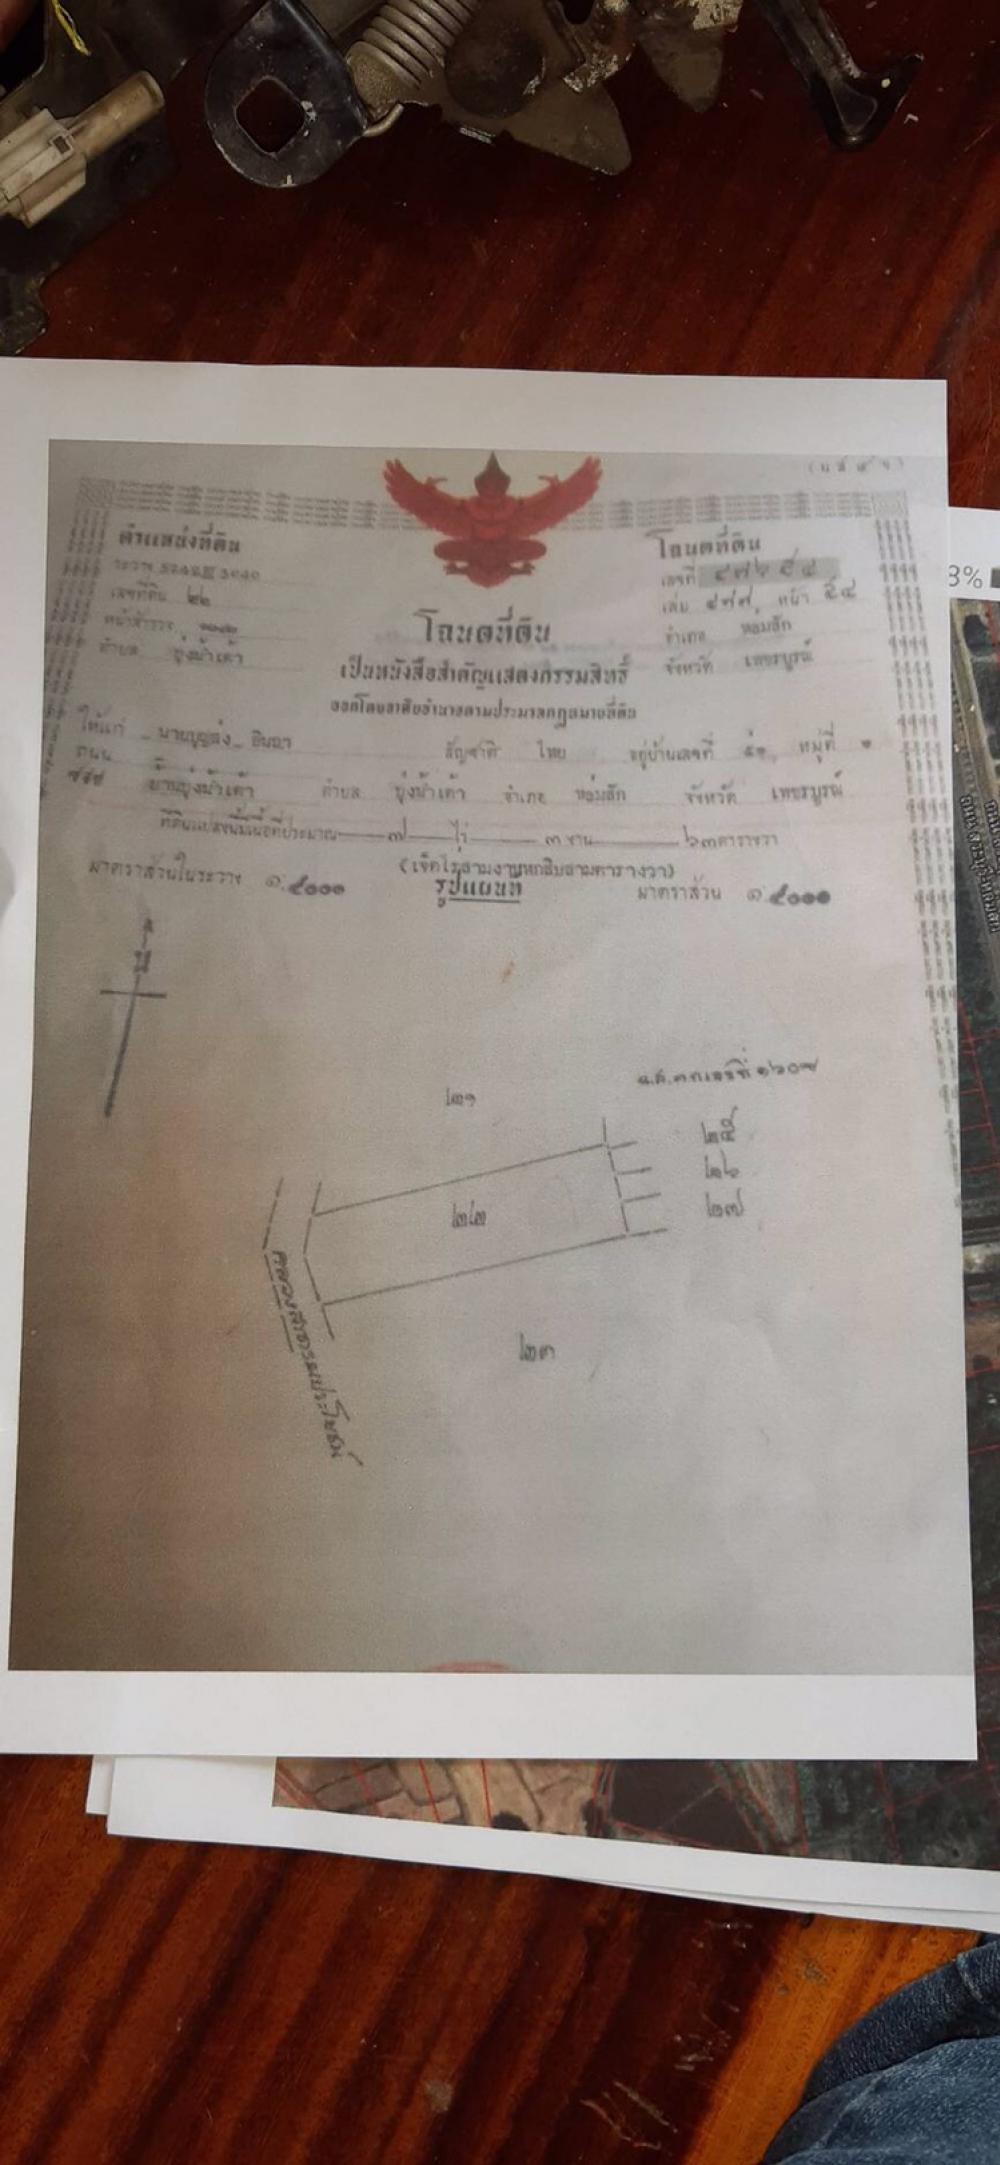 ตำแหน่งที่ดิน
ระวาง 5242 III 3040
เลขที่ดิน ๒๒
หน้าสำรวจ
ตำบล บุ่งน้ำเต้า
โฉนดที่ดิน
เลขที่ ๔๗๖๕๔
เล่ม ๔๗๗ หน้า ๕๔
อำเภอ หล่มสัก
จังหวัด เพชรบูรณ์
โฉนดที่ดิน
เป็นหนังสือสำคัญแสดงกรรมสิทธิ์
ออกโดยอาศัยอำนาจตามประมวลกฎหมายที่ดิน
ให้แก่ นายบุญส่ง อินจา สัญชาติ ไทย อยู่บ้านเลขที่ ๕๑ หมู่ที่ ๑
ถนน
บ้านบุ่งน้ำเต้า ตำบล บุ่งน้ำเต้า อำเภอ หล่มสัก จังหวัด เพชรบูรณ์
ที่ดินแปลงนี้มีเนื้อที่ประมาณ ๗ ไร่ ๓ งาน ๖๓ ตารางวา
(เจ็ดไร่สามงานหกสิบสามตารางวา)
มาตราส่วนในระวาง ๑:๔๐๐๐ รูปแผนที่ มาตราส่วน ๑:๔๐๐๐
น
น.ส.๓ก เลขที่ ๑๖๐๗
๒๑
๒๕
๒๖
๒๗
๒๒
๒๓
คลองสาธารณประโยชน์
3%